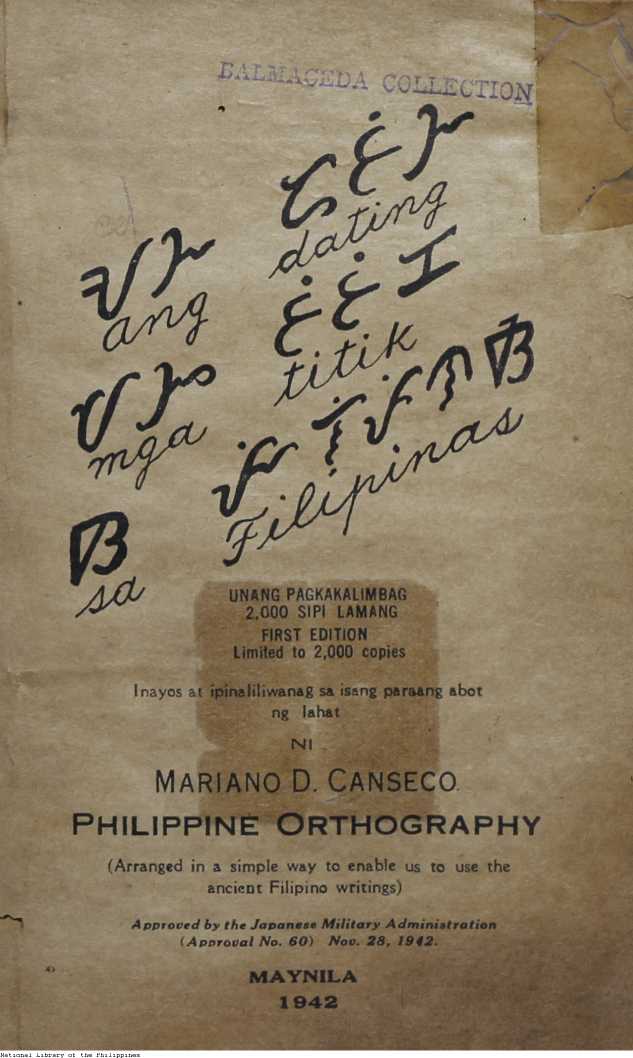 BALMACEDA COLLECTION
ᜀᜅ ᜇᜆᜒᜅ
ang dating
ᜋᜅ ᜆᜒᜆᜒᜃ
mga titik
ᜐ ᜉᜒᜎᜒᜉᜒᜈᜐ
sa Filipinas
UNANG PAGKAKALIMBAG
2,000 SIPI LAMANG
FIRST EDITION
Limited to 2,000 copies
Inayos at ipinaliliwanag sa isang paraang abot
ng lahat
NI
MARIANO D. CANSECO.
PHILIPPINE ORTHOGRAPHY
(Arranged in a simple way to enable us to use the
ancient Filipino writings)
Approved by the Japanese Military Administration
(Approval No. 60) Nov. 28, 1942.
MAYNILA
1942
National Library of the Philippines